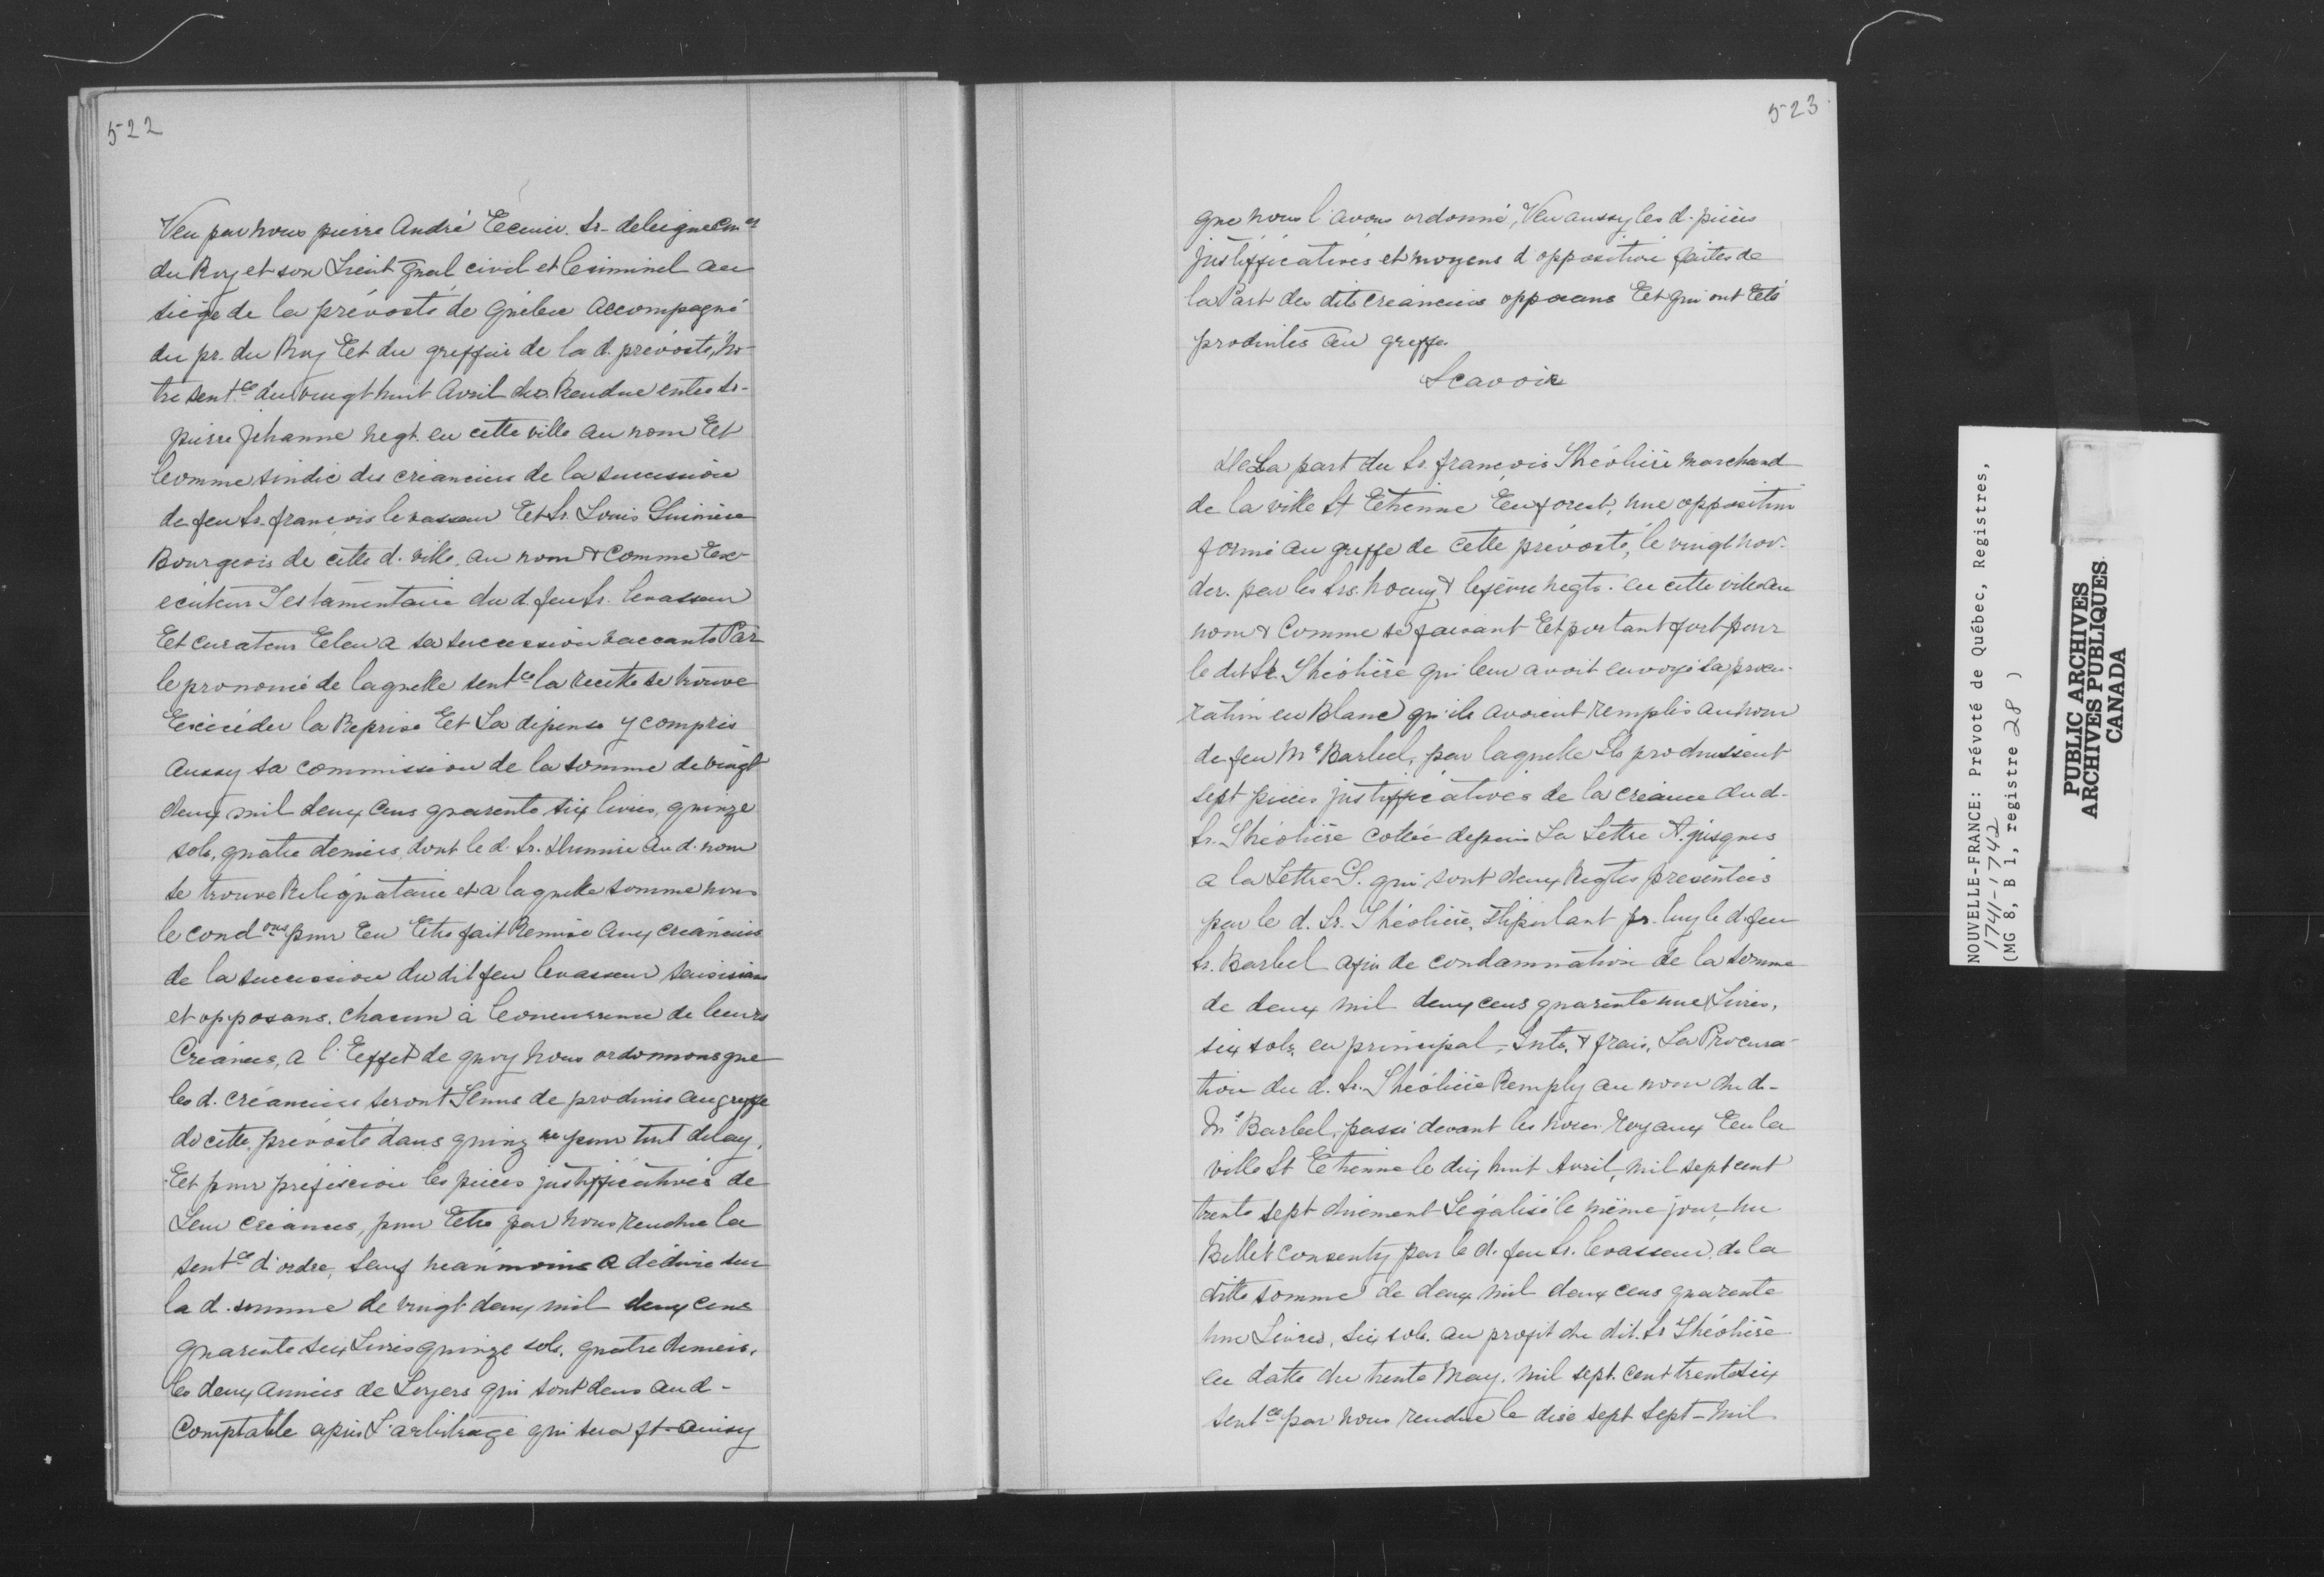 522
Veu par nous pierre André Ecuier. Sr. deleigne Con er
du Roy et son Lieut Gnal civil et Criminel au
siège de la prévosté de Québec accompagné
du pr. du Roy Et du greffier de la d. prévosté, no-
tre sent ce du vingt huit Avril der. Rendue entre Sr.
pierre Jehanne negt. en cette ville au nom Et
Comme sindic des créanciers de la succession
de feu Sr. francois levasseur Et Sr. Louis
Bourgeois de cette d. ville. au nom & Comme Exe-
ecuteur Testamentaire du d. feu Sr. levasseur
Et curateur Eleu a sa succession vaccante Par
le prononcé de laquelle sent ce la recette se trouve
Exceder la Reprise Et La dépense y compris
Aussy sa commission de la somme de vingt
deux mil deux cens quarente six livres, quinze
sols, quatre deniers, dont le d. Sr. au d. nom
se trouve Reliquataire et a laquelle somme nous
le cond ons pour En Etre fait Remise Aux créanciers
de la succession du dit feu levasseur saisissans
et opposans. chacun à Concurrence de leurs
Créances, a l'Effet de quoy Nous ordonnons que
les d. créanciers seront Tenus de produire au greffe
de cette prévosté dans quinz ne pour tout delay,
Et pour préfiscion les pieces justifficatives de
Leur créances, pour Etre par nous rendue la
sent ce d'ordre, sauf néanmoins a déduire sur
la d. somme de vingt deux mil deux cens
quarente six Livres quinze sols. quatre deniers,
les deux années de Loyers qui sont deus au d-
Comptable après L'arbitrage qui sera ft. ainsy
523
que nous l'avons ordonné, Veu aussy les d. pièces
justifficatives et moyens d'opposition faites de
la Part des dits créanciers opposans Et qui ont Eté
produites au greffe.
Scavoir
De La part du Sr. francois Théolière marchand
de la ville St Etienne En forest, une opposition
formé au greffe de cette prévosté, le vingt nov.
der. par les Srs. houry & lefevre negts. en cette ville au
nom & Comme se faisant Et portant fort pour
le dit Sr. Théolière qui leur avoit envoyé sa procu-
ration en Blanc qu'ils avoient remplis au nom
de feu Me Barbel, par laquelle Ils produissent
sept pièces justifficatives de la créance du d.
Sr. Théolière cottée depuis La Lettre A. jusques
a la Lettre G. qui sont deux Regtes présentées
par le d. Sr. Théolière, stipulant pr. luy le d. feu
Sr. Barbel afin de condamnation de la somme
de deux mil deux cens quarente une Livres,
six sols, en principal, Ints. & frais, La Procura-
tion du d. Sr. Théolière Remply au nom du d-
Me Barbel, passé devant les nores royaux En la
ville St Etienne le dix huit Avril, mil sept cent
trente sept duement Légalisé le même jour, un
Billet consenty par le d. feu Sr. levasseur, de la
ditte somme de deux mil deux cens quarente
une Livres, six sols. au profit du dit. Sr Théolière
en datte du trente May, mil sept. cent trente six
sent ce par nous rendue le dix sept Sept- mil
NOUVELLE-FRANCE: Prévoté de Québec, Registres,
1741-1742
(MG 8, B 1, registre 28 )
PUBLIC ARCHIVES
ARCHIVES PUBLIQUES
CANADA